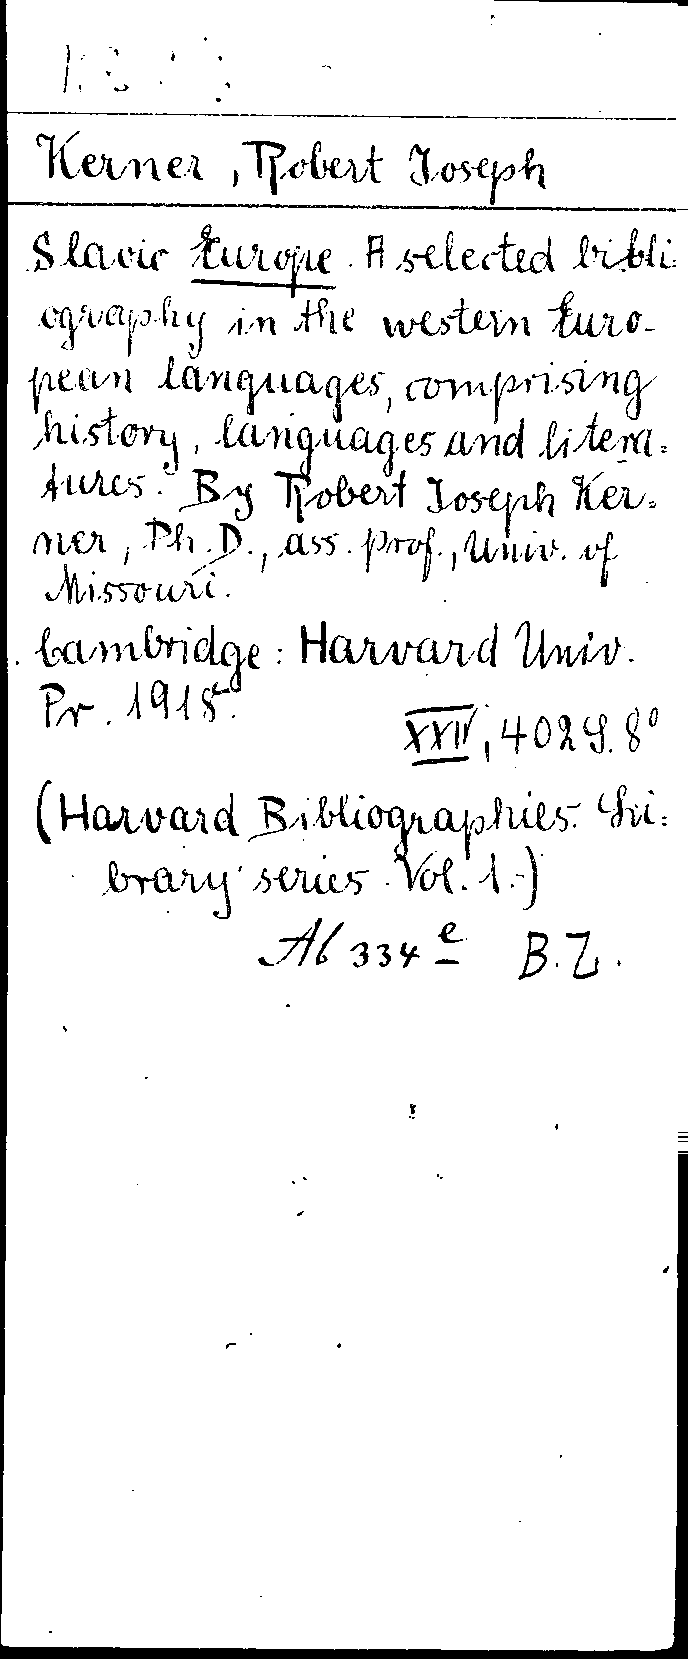 Kerner, Robert Joseph
Slavic Europe. A selected bibli-
ography in the western Euro-
pean languages, comprising
history, languages and litera-
tures. By Robert Joseph Ker-
ner, Ph.D., ass. prof., Univ. of
Missouri.
Cambridge: Harvard Univ.
Pr. 1918.
XXIV, 402 S. 8°
(Harvard Bibliographies. Li-
brary series. Vol. 1.)
Ab 334 e B.Z.